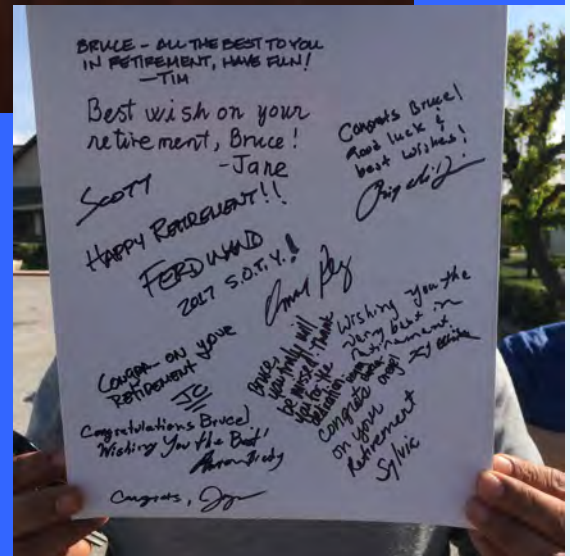 BRUCE - ALL THE BEST TO YOU
IN RETIREMENT, HAVE FUN!
-TIM
Best wish on your
retirement, Bruce!
-Jane
Congrats Bruce!
Good luck &
best wishes!
SCOTT
HAPPY RETIREMENT!!
FERDINAND
2017 S.O.T.Y.!
Wishing you the
very best in
retirement
Bruce,
you truly will
be missed! Thank
you for the
CONGRATS ON YOUR
RETIREMENT
JC
Congrats
on your
Retirement
Sylvia
Congratulations Bruce!
Wishing You the Best!
Congrats,